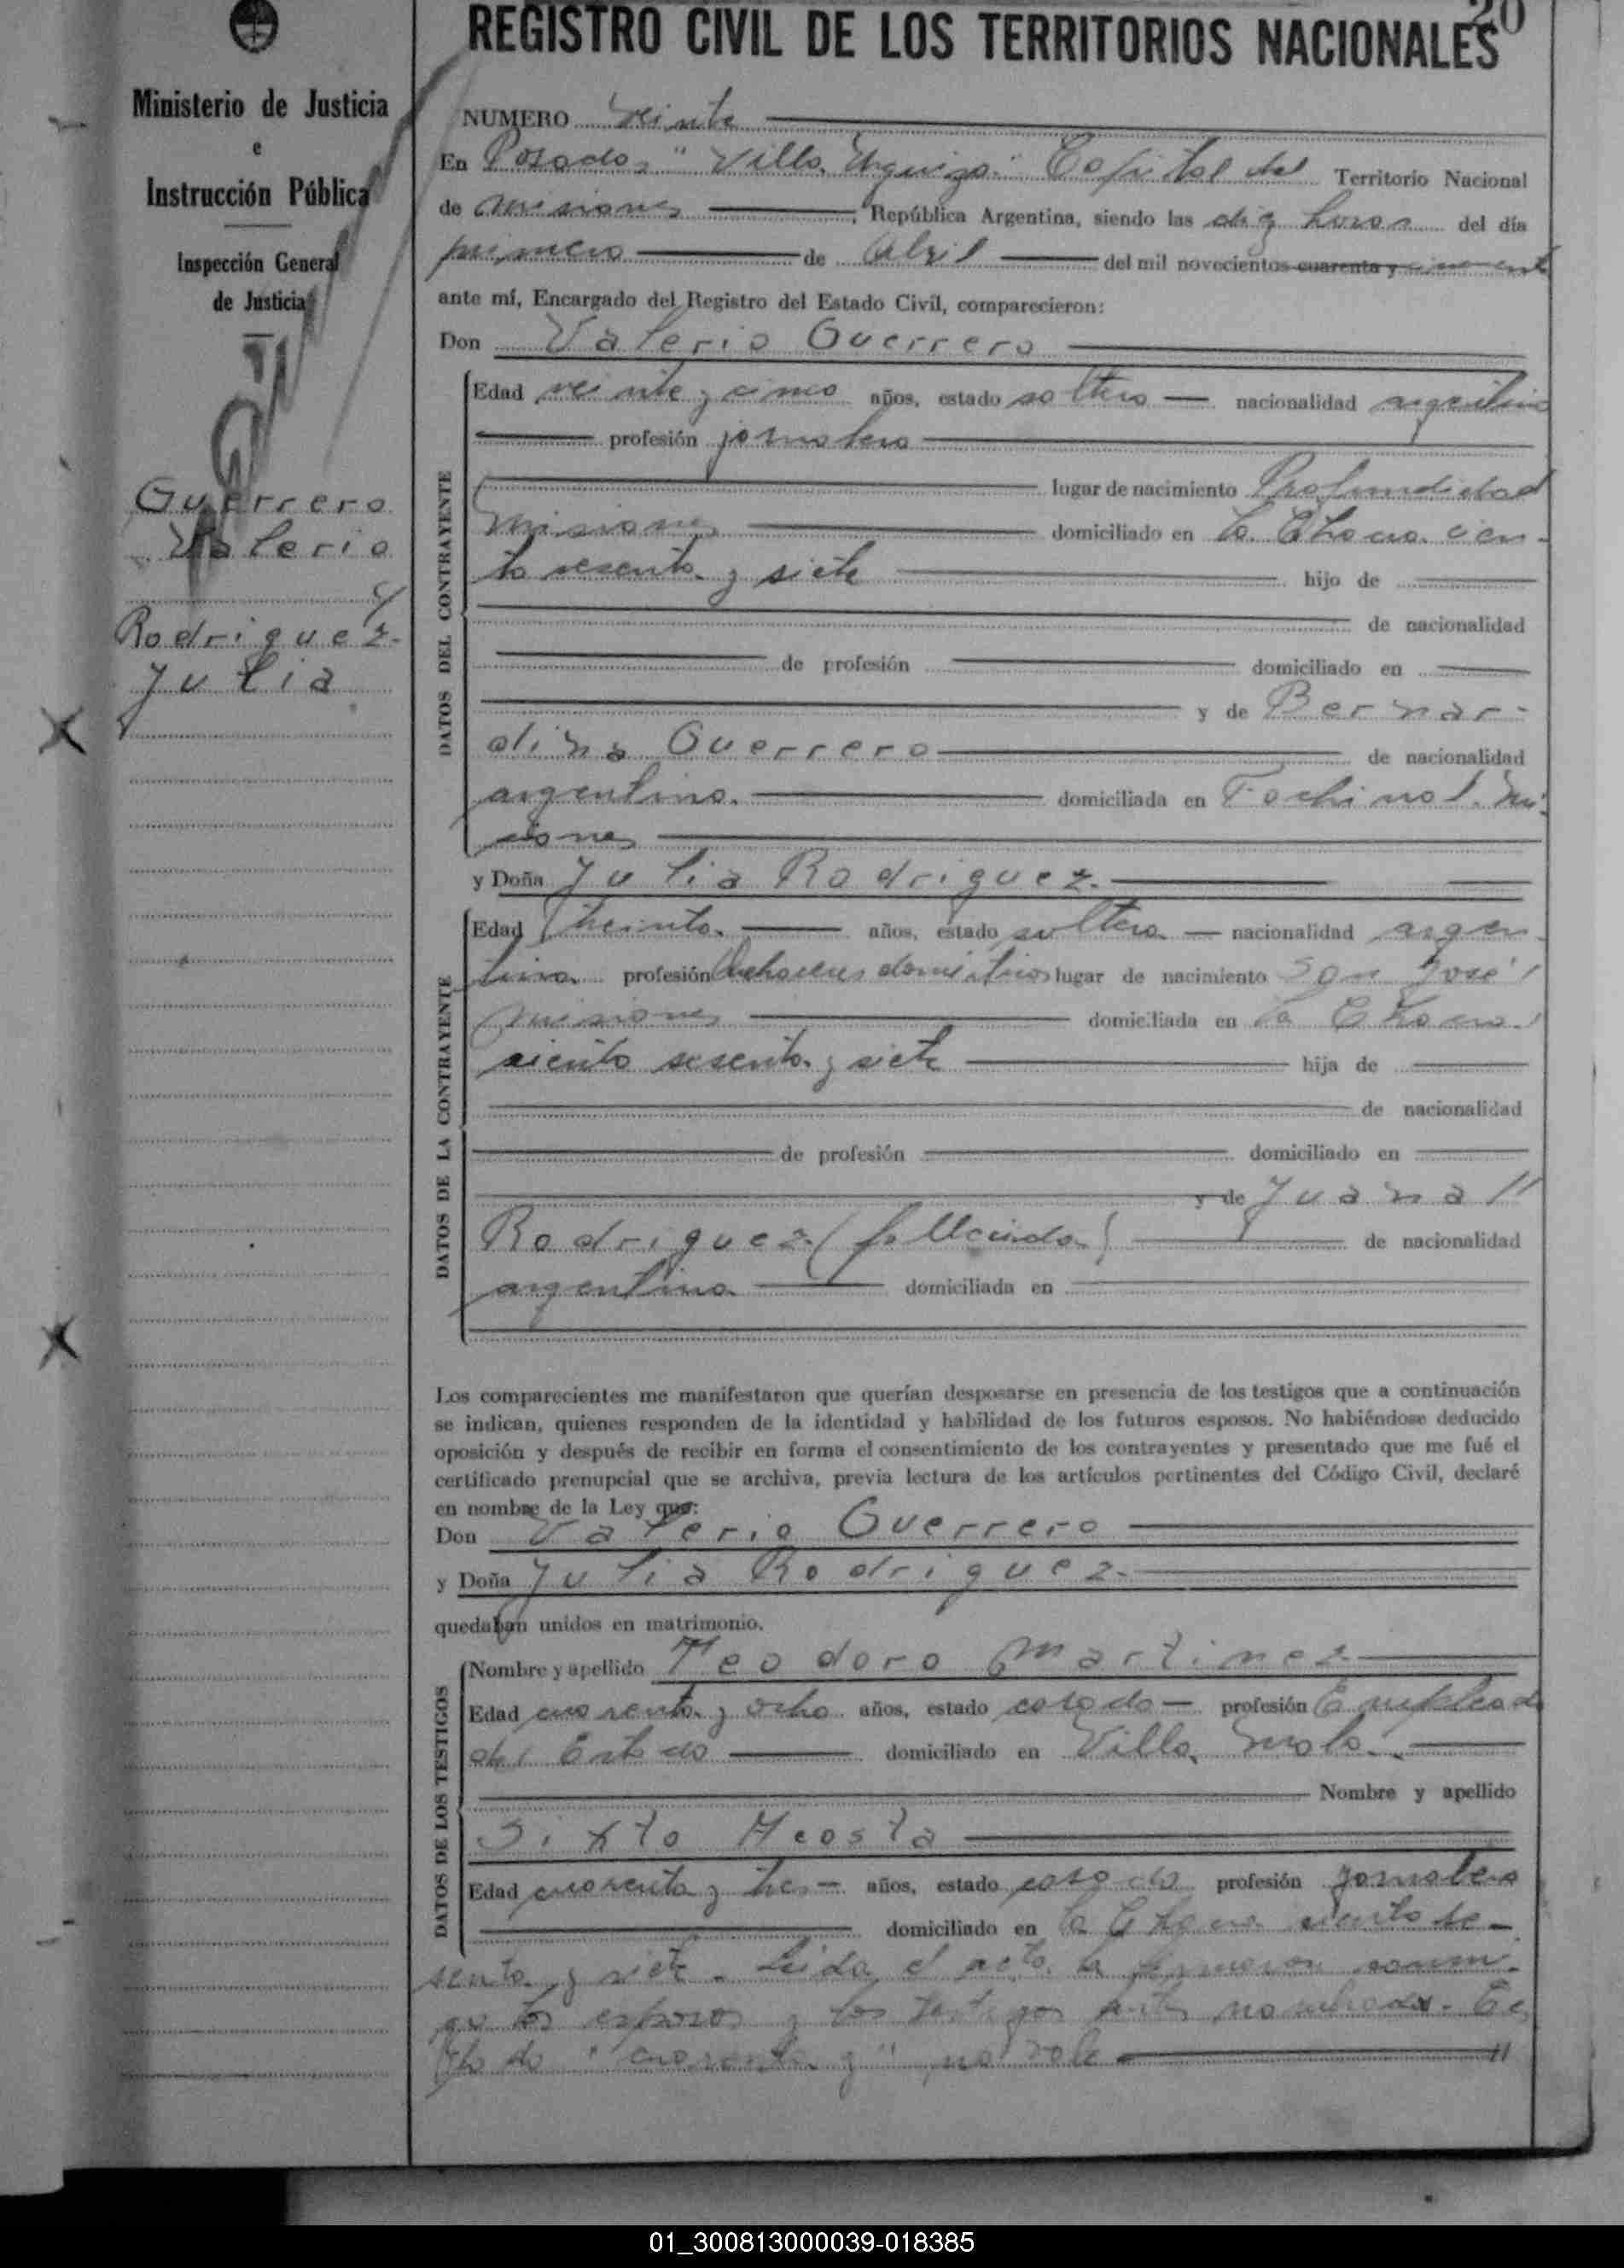 20
REGISTRO CIVIL DE LOS TERRITORIOS NACIONALES
Ministerio de Justicia
e
Instrucción Pública
Inspección General
de Justicia
Guerrero
Valerio
y
Rodriguez
Julia
NUMERO veinte
En Posadas "Villa Urquiza" Capital del Territorio Nacional
de Misiones, República Argentina, siendo las diez horas del día
primero de Abril del mil novecientos cuarenta y cincuenta
ante mí, Encargado del Registro del Estado Civil, comparecieron:
Don Valerio Guerrero
DATOS DEL CONTRAYENTE
Edad veinte y cinco años, estado soltero nacionalidad argentino
profesión jornalero
lugar de nacimiento Profundidad
Misiones domiciliado en la Chacra cien-
to sesenta y siete hijo de
de nacionalidad
de profesión domiciliado en
y de Bernar-
dina Guerrero de nacionalidad
argentina. domiciliada en Fachinal. Mi-
siones
y Doña Julia Rodriguez
DATOS DE LA CONTRAYENTE
Edad treinta años, estado soltera nacionalidad argen-
tina profesión Quehaceres domésticos lugar de nacimiento San José
Misiones domiciliada en la Chacra
ciento sesenta y siete hija de
de nacionalidad
de profesión domiciliado en
y de Juana //
Rodriguez (fallecida) de nacionalidad
argentina domiciliada en
Los comparecientes me manifestaron que querían desposarse en presencia de los testigos que a continuación
se indican, quienes responden de la identidad y habilidad de los futuros esposos. No habiéndose deducido
oposición y después de recibir en forma el consentimiento de los contrayentes y presentado que me fué el
certificado prenupcial que se archiva, previa lectura de los artículos pertinentes del Código Civil, declaré
en nombre de la Ley que:
Don Valerio Guerrero
y Doña Julia Rodriguez
quedaban unidos en matrimonio.
DATOS DE LOS TESTIGOS
Nombre y apellido Teodoro Martinez
Edad cuarenta y ocho años, estado casado profesión Empleado
del Estado domiciliado en Villa Mola
Nombre y apellido
Sixto Acosta
Edad cuarenta y tres años, estado casado profesión jornalero
domiciliado en la Chacra ciento se-
senta y siete. Leida el acta la firmaron conmi-
go los esposos y los testigos antes nombrados.
"cuarenta y" no vale //
01_300813000039-018385